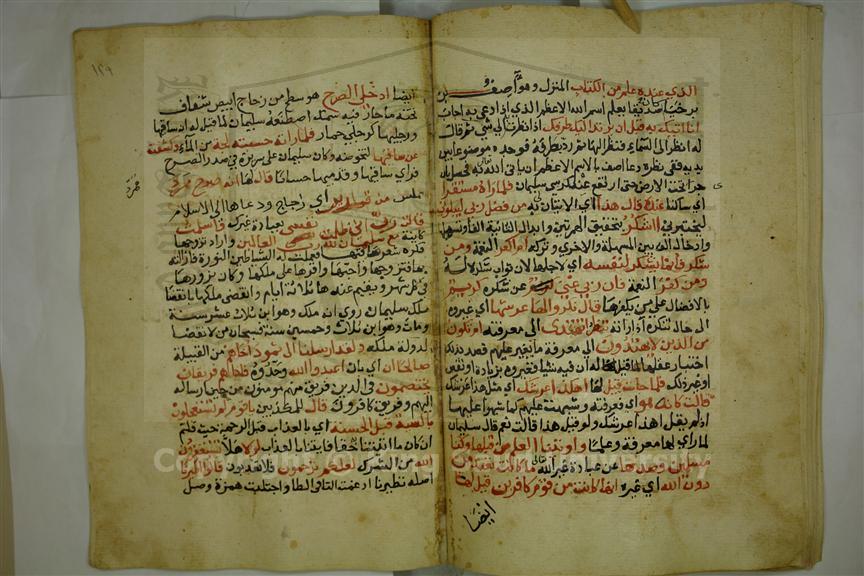 الذي عنده علم من الكتاب المنزل وهو آصف بن
برخيا صديقا يعلم اسم الله الاعظم الذي اذا دعي به اجاب
انا اتيك به قبل ان يرتد اليك طرفك اذا نظرت الى شي قال
له انظر الى السماء فنظر اليها ثم رد بطرفه فوجده موضوعا بين
يديه ففي نظره دعا اصف بالاسم الاعظم ان ياتي الله تعالى به فحصل بان
جرى تحت الارض حتى ارتفع عند كرسي سليمان فلما راه مستقرا
اي ساكنا عنده قال هذا اي الاتيان به من فضل ربي ليبلوني
ليختبرني ااشكر بتحقيق الهمزتين وابدال الثانية الفا وتسهيلها
وادخال الف بين المسهلة والاخرى وتركه ام اكفر النعمة ومن
شكر فانما يشكر لنفسه اي لاجلها لان ثواب شكره له
ومن كفر النعمة فان ربي غني عن شكره كريم
بالافضال على من يكفرها قال نكروا لها عرشها اي غيروه
الى حال تنكره اذا راته ننظر اتهتدي الى معرفته ام تكون
من الذين لا يهتدون الى معرفة ما يغير عليهم قصد بذلك
اختبار عقلها لما قيل له ان فيه شيئا فغيروه بزيادة او نقص
او غير ذلك فلما جات قيل لها اهكذا عرشك اي مثل هذا عرشك
قالت كانه هو اي فعرفته وشبهت عليهم كما شبهوا عليها
اذ لم يقل اهذا عرشك ولو قيل هذا قالت نعم قال سليمان
لما راي لها معرفة وعلما واوتينا العلم من قبلها وكنا
مسلمين وصدها عن عبادة غير الله ما كانت تعبد من
دون الله اي غيره انها كانت من قوم كافرين قيل لها
ايضا
١٢٩
ايضا ادخلي الصرح هو سطح من زجاج ابيض شفاف
تحته ما جار فيه سمك اصطنعه سليمان لما قيل له ان ساقيها
ورجليها كرجلي حمار فلما راته حسبته لجة من الماء وكشفت
عن ساقيها لتخوضه وكان سليمان على سريره في صدر الصرح
فراي ساقيها وقدميها حسانا قال لها انه صرح ممرد
مملس من قوارير اي زجاج ودعاها الى الاسلام
قالت رب اني ظلمت نفسي بعبادة غيرك واسلمت
كاينة مع سليمان لله رب العالمين واراد تزوجها
فكره شعر ساقيها فعملت له الشياطين النورة فازالته
بها فتزوجها واحبها واقرها على ملكها وكان يزورها
في كل شهر ويقيم عندها ثلاثة ايام وانقضى ملكها بانقضا
ملك سليمان روي انه ملك وهو ابن ثلاث عشر سنة
ومات وهو ابن ثلاث وخمسين سنة فسبحان من لا انقضا
لدولة ملكه ولقد ارسلنا الى ثمود اخاهم من القبيلة
صالحا ان اي بان اعبدوا الله وحدوه فاذا هم فريقان
يختصمون في الدين فريق منهم مومنون من حين ارساله
اليهم وفريق كافرون قال للمكذبين ياقوم لم تستعجلون
بالسيئة قبل الحسنة اي بالعذاب قبل الرحمة حيث قلتم
ان كان ما اتيتنا حقا فايتنا بالعذاب لولا هلا تستغفرون
الله من الشرك لعلكم ترحمون فلا تعذبون قالوا اطيرنا
اصله تطيرنا ادغمت التا في الطا واجتلبت همزة وصل